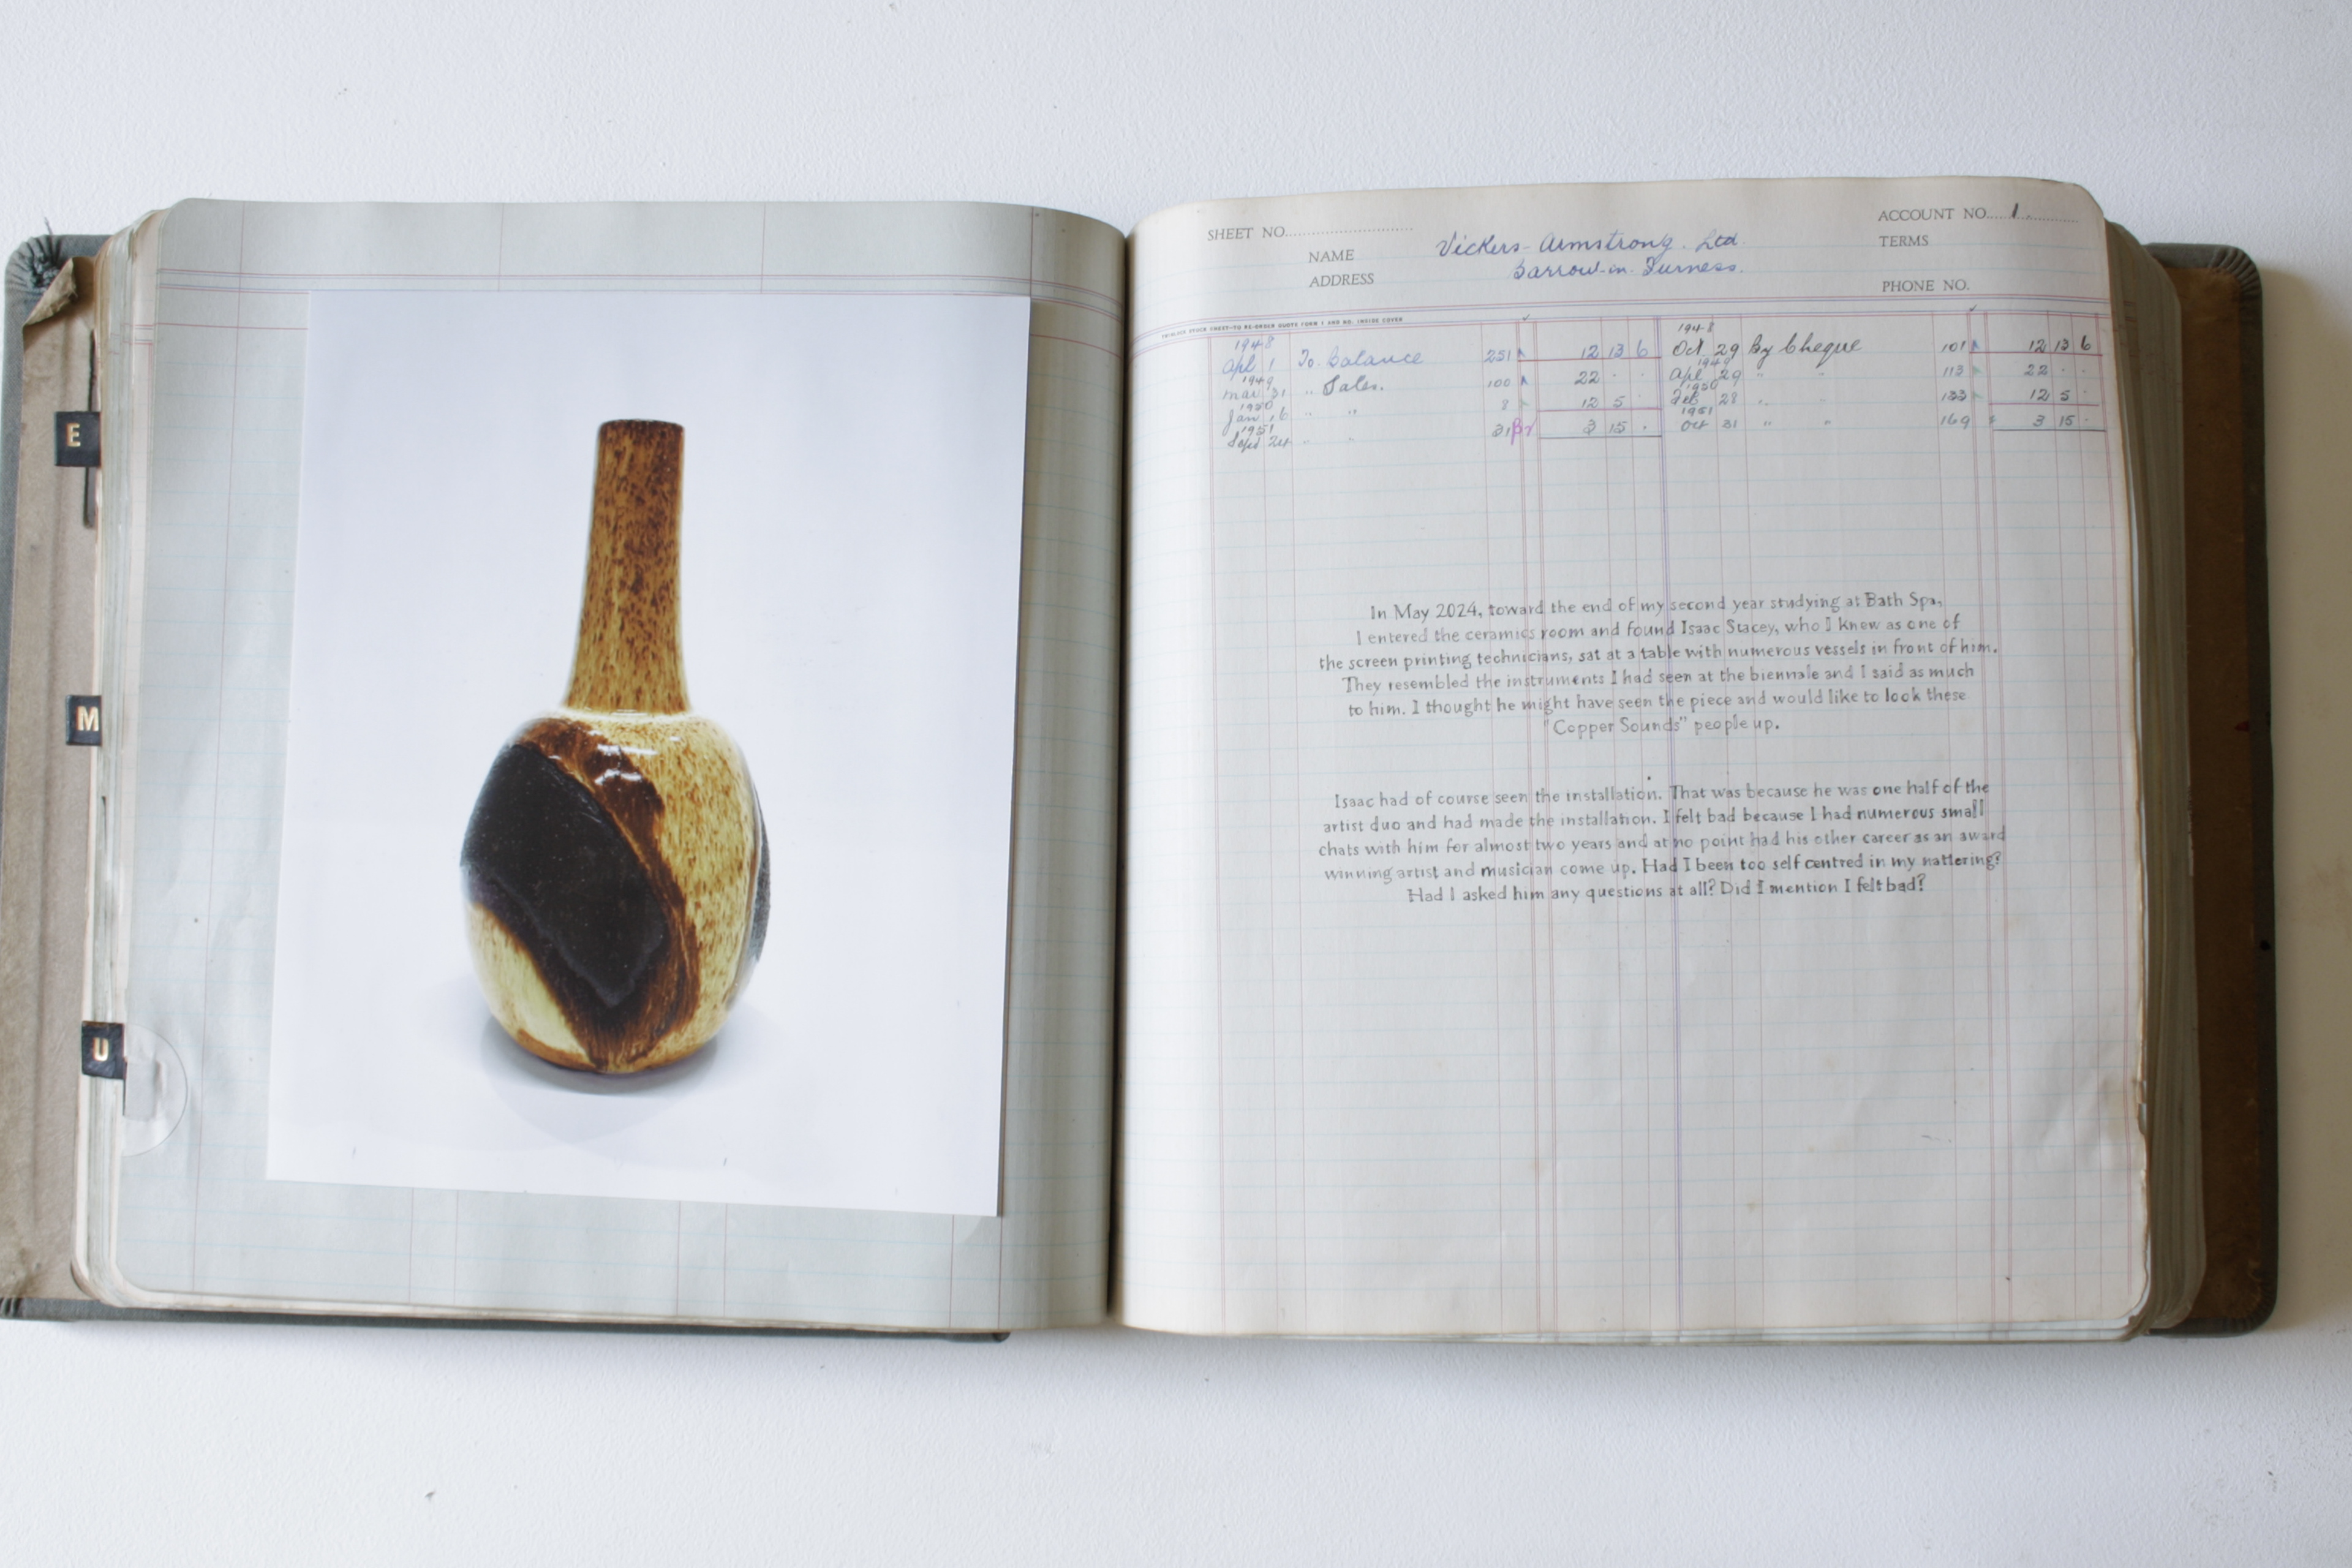 E
M
U
SHEET NO.
ACCOUNT NO. 1.
NAME Vickers-Armstrong. Ltd.
TERMS
ADDRESS Barrow-in-Furness.
PHONE NO.
TWINLOCK STOCK SHEET-TO RE-ORDER QUOTE FORM 1 AND NO. INSIDE COVER
1948 1948
Apl 1 To Balance 251 12 13 6 Oct 29 By Cheque 101 12 13 6
1949 1949
Mar 31 " Sales. 100 22 . . Apl 29 " " 113 22 . .
1950 1950
Jan 16 " " 8 12 5 . Feb 28 " " 133 12 5 .
1951 1951
Sept 24 " " 31 3 15 . Oct 31 " " 169 3 15 .
In May 2024, toward the end of my second year studying at Bath Spa,
I entered the ceramics room and found Isaac Stacey, who I knew as one of
the screen printing technicians, sat at a table with numerous vessels in front of him.
They resembled the instruments I had seen at the biennale and I said as much
to him. I thought he might have seen the piece and would like to look these
"Copper Sounds" people up.
Isaac had of course seen the installation. That was because he was one half of the
artist duo and had made the installation. I felt bad because I had numerous small
chats with him for almost two years and at no point had his other career as an award
winning artist and musician come up. Had I been too self centred in my nattering?
Had I asked him any questions at all? Did I mention I felt bad?